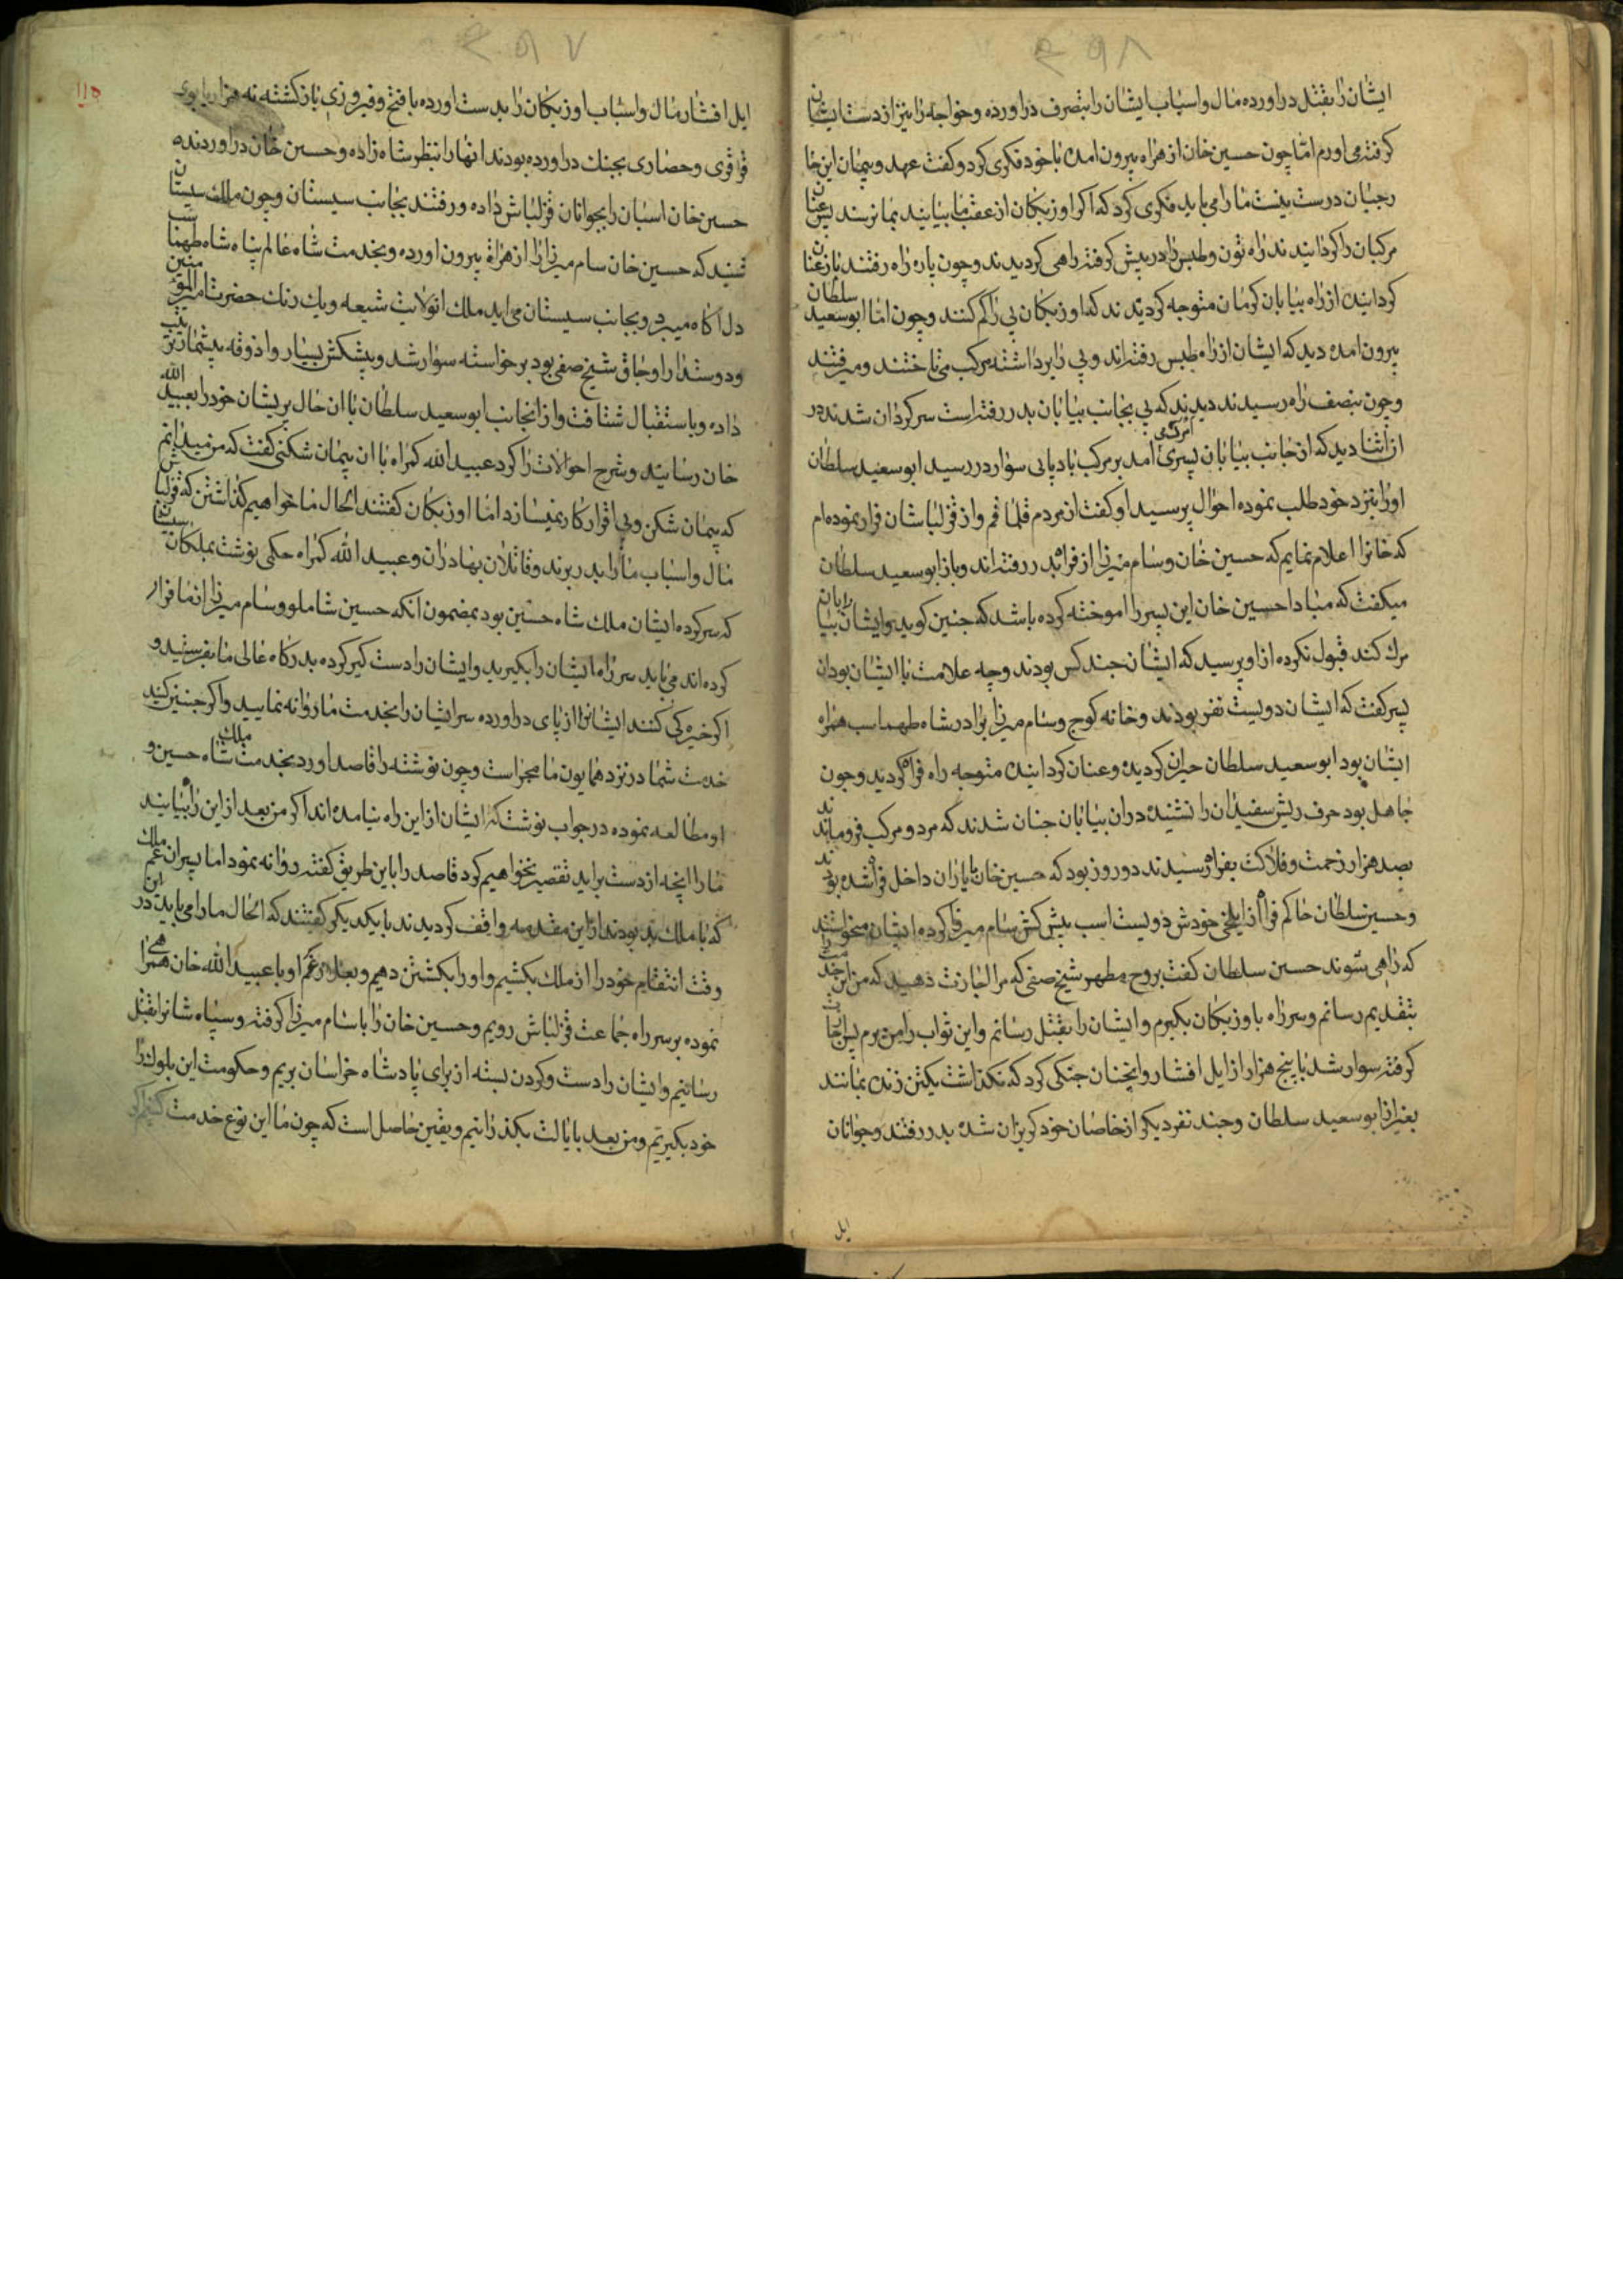 ایشان را بقتل دراورده مال واسباب ایشان را بتصرف دراورده وخواجه را نیز از دست ایشان
کرفته می اورم امّا چون حسین خان از هراه بیرون امده با خود فکری کرد و کفت عهد و پیمان این
مارا می باید فکری کرد که اکر اوزبکان از عقب ما بیایند بما نرسند پس عنان
مرکبان را کردانیدند راه تون وطبس را در پیش کرفته راهی کردیدند وچون پاره راه رفتند باز عنان
کردانیده از راه بیابان کرمان متوجه کردیدند که اوزبکان پی را کم کنند وچون امّا ابوسعید سلطان
بیرون امده دید که ایشان از راه طبس رفته اند وپی را برداشته مرکب می تاختند و میرفتند
وچون بنصف راه رسیدند دیدند که پی بجانب بیابان بدر رفته است سرکردان شدند در
ان اثنا دید که از جانب بیابان پیری امد بر مرکب بادپایی سوار در رسید ابوسعید سلطان
اورا بنزد خود طلب نموده احوال پرسید او کفت از مردم قلما قم واز قزلباشان فرار نموده ام
که خانرا اعلام نمایم که حسین خان وسام میرزا از فراه بدر رفته اند وباز ابوسعید سلطان
میکفت که مبادا حسین خان این پیر را اموخته کرده باشد که چنین کوید وایشان بیابان را
مرک کند قبول نکرده از او پرسید که ایشان چند کس بودند وچه علامت با ایشان بود ان
پیر کفت که ایشان دویست نفر بودند وخانه کوچ وسام میرزا برادر شاه طهماسب همراه
ایشان بود ابوسعید سلطان حیران کردیده وعنان کردانیده متوجه راه فراه کردید وچون
جاهل بود حرف ریش سفیدان را نشنیده دران بیابان چنان شدند که مرد و مرکب فروماندند
بصد هزار زحمت وفلاکت بفراه رسیدند دو روز بود که حسین خان با یاران داخل فراه شده بودند
وحسین سلطان حاکم فراه از ایلخی خودش دویست اسب پیش کش سام میرزا کرده ایشان میخواستند
که راهی شوند حسین سلطان کفت بروح مطهر شیخ صفی که مرا اجازت دهید که من این خدمت را
بتقدیم رسانم وسر راه با اوزبکان بکیرم وایشان را بقتل رسانم واین ثواب را من برم پس
کرفته سوار شد با پنج هزار از ایل افشار وانچنان جنکی کرد که نکذاشت یکتن زنده بمانند
بغیر از ابوسعید سلطان وچند نفر دیکر از خاصان خود کریزان شده بدر رفتند وجوانان
ایل
۱۱۵
ایل افشار مال واسباب اوزبکان را بدست اورده با فتح وفیروزی بازکشته نه هزار
قزاقری وحصاری بجنک دراورده بودند انها را بنظر شاه زاده وحسین خان دراوردند
حسین خان اسبان را بجوانان قزلباش داده ورفتند بجانب سیستان وچون ملک سیستان
شنید که حسین خان سام میرزا را از هراة بیرون اورده وبخدمت شاه عالم پناه شاه طهماسب
دل اکاه میبرد وبجانب سیستان می اید ملک شیعه ویک رنک حضرت امیر المؤمنین
ودوستدار اوجاق شیخ صفی بود برخواسته سوار شد وپیشکش بسیار واذوقه بیشمار ترتیب
داده وباستقبال شتافت واز انجانب ابوسعید سلطان با ان حال پریشان خودرا بعبید الله
خان رسانید وشرح احوالات را کرد عبید الله کمراه با ان پیمان شکنی کفت که من میدانم
که پیمان شکن وبی اقرار کار نمیسازد امّا اوزبکان کفتند الحال ما خواهیم کذاشتن که قزلباش
مال واسباب ما را بدر برند وقاتلان بهادران وعبید الله کمراه حکمی نوشت بملکان سیستان
که سرکرده ایشان ملک شاه حسین بود بمضمون انکه حسین شاملو وسام میرزا از ما فرار
کرده اند می باید سر راه ایشان را بکیرید وایشان را دست کیر کرده بدرکاه عالی ما بفرستید و
اکر خیره کی کنند ایشانرا از پای دراورده سر ایشان را بخدمت ما روانه نمایید واکر چنین کنید
خدمت شما در نزد همایون ما مجراست وچون نوشته را قاصد اورد بخدمت ملک شاه حسین و
او مطالعه نموده در جواب نوشت که ایشان از این راه نیامده اند اکر من بعد از این راه بیایند
ما را انچه از دست براید تقصیر نخواهیم کرد قاصد را باین طریق کفته روانه نمود اما پسران عم ملک
که با ملک بد بودند از این مقدمه واقف کردیدند با یکدیکر کفتند که الحال ما را می باید در این
وقت انتقام خود را از ملک بکشیم واورا بکشتن دهیم وبعد او با عبید الله خان همراهی
نموده بر سر راه جماعت قزلباش رویم وحسین خان را با سام میرزا کرفته وسپاه شانرا بقتل
رسانیم وایشان را دست وکردن بسته از برای پادشاه خراسان بریم وحکومت این بلوک را
خود بکیریم ومن بعد بایالت بکذرانیم ویقین حاصل است که چون ما این نوع خدمت